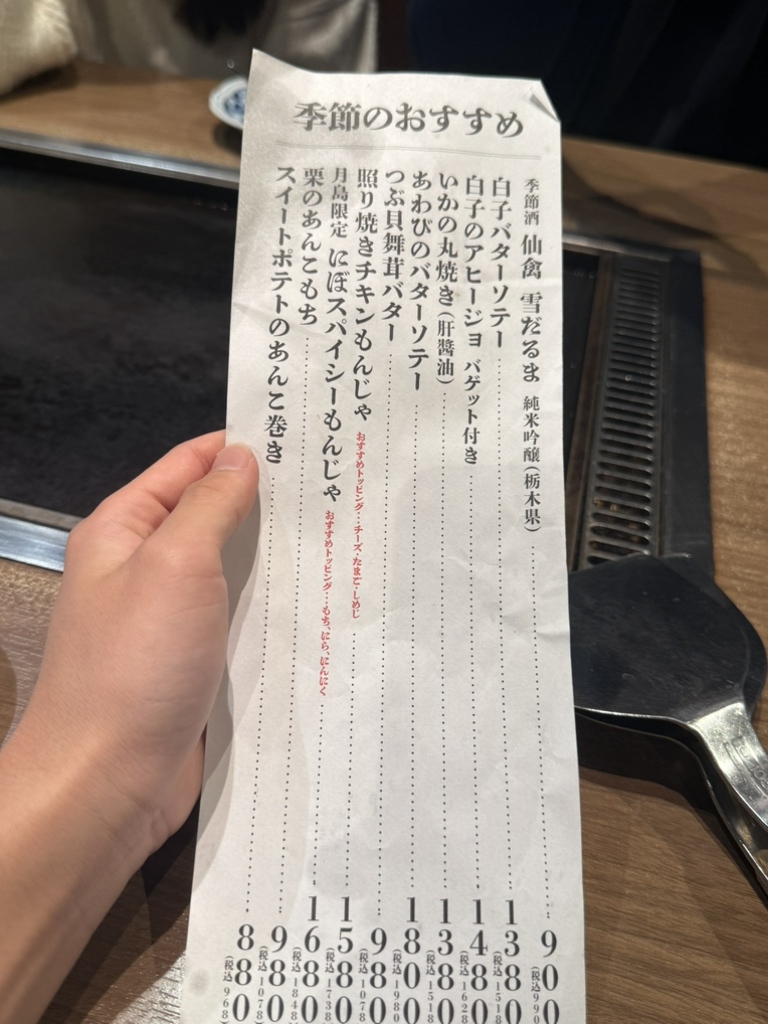 季節のおすすめ
季節酒 仙禽 雪だるま 純米吟醸(栃木県) 900 (税込990
白子バターソテー 1380 (税込1518
白子のアヒージョ バゲット付き 1480 (税込1628
いかの丸焼き(肝醤油) 1380 (税込1518
あわびのバターソテー 1800 (税込1980
つぶ貝舞茸バター 980 (税込1078
照り焼きチキンもんじゃ おすすめトッピング…チーズ・たまご・しめじ 1580 (税込1738
月島限定 にぼスパイシーもんじゃ おすすめトッピング…もち、にら、にんにく 1680 (税込1848
栗のあんこもち 980 (税込1078
スイートポテトのあんこ巻き 880 (税込968)